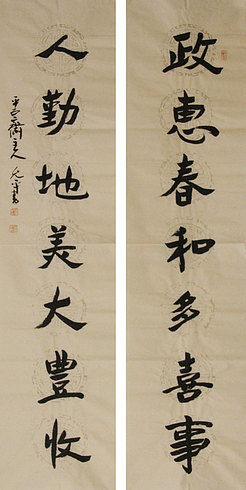 政惠春和多喜事
人勤地美大豐收